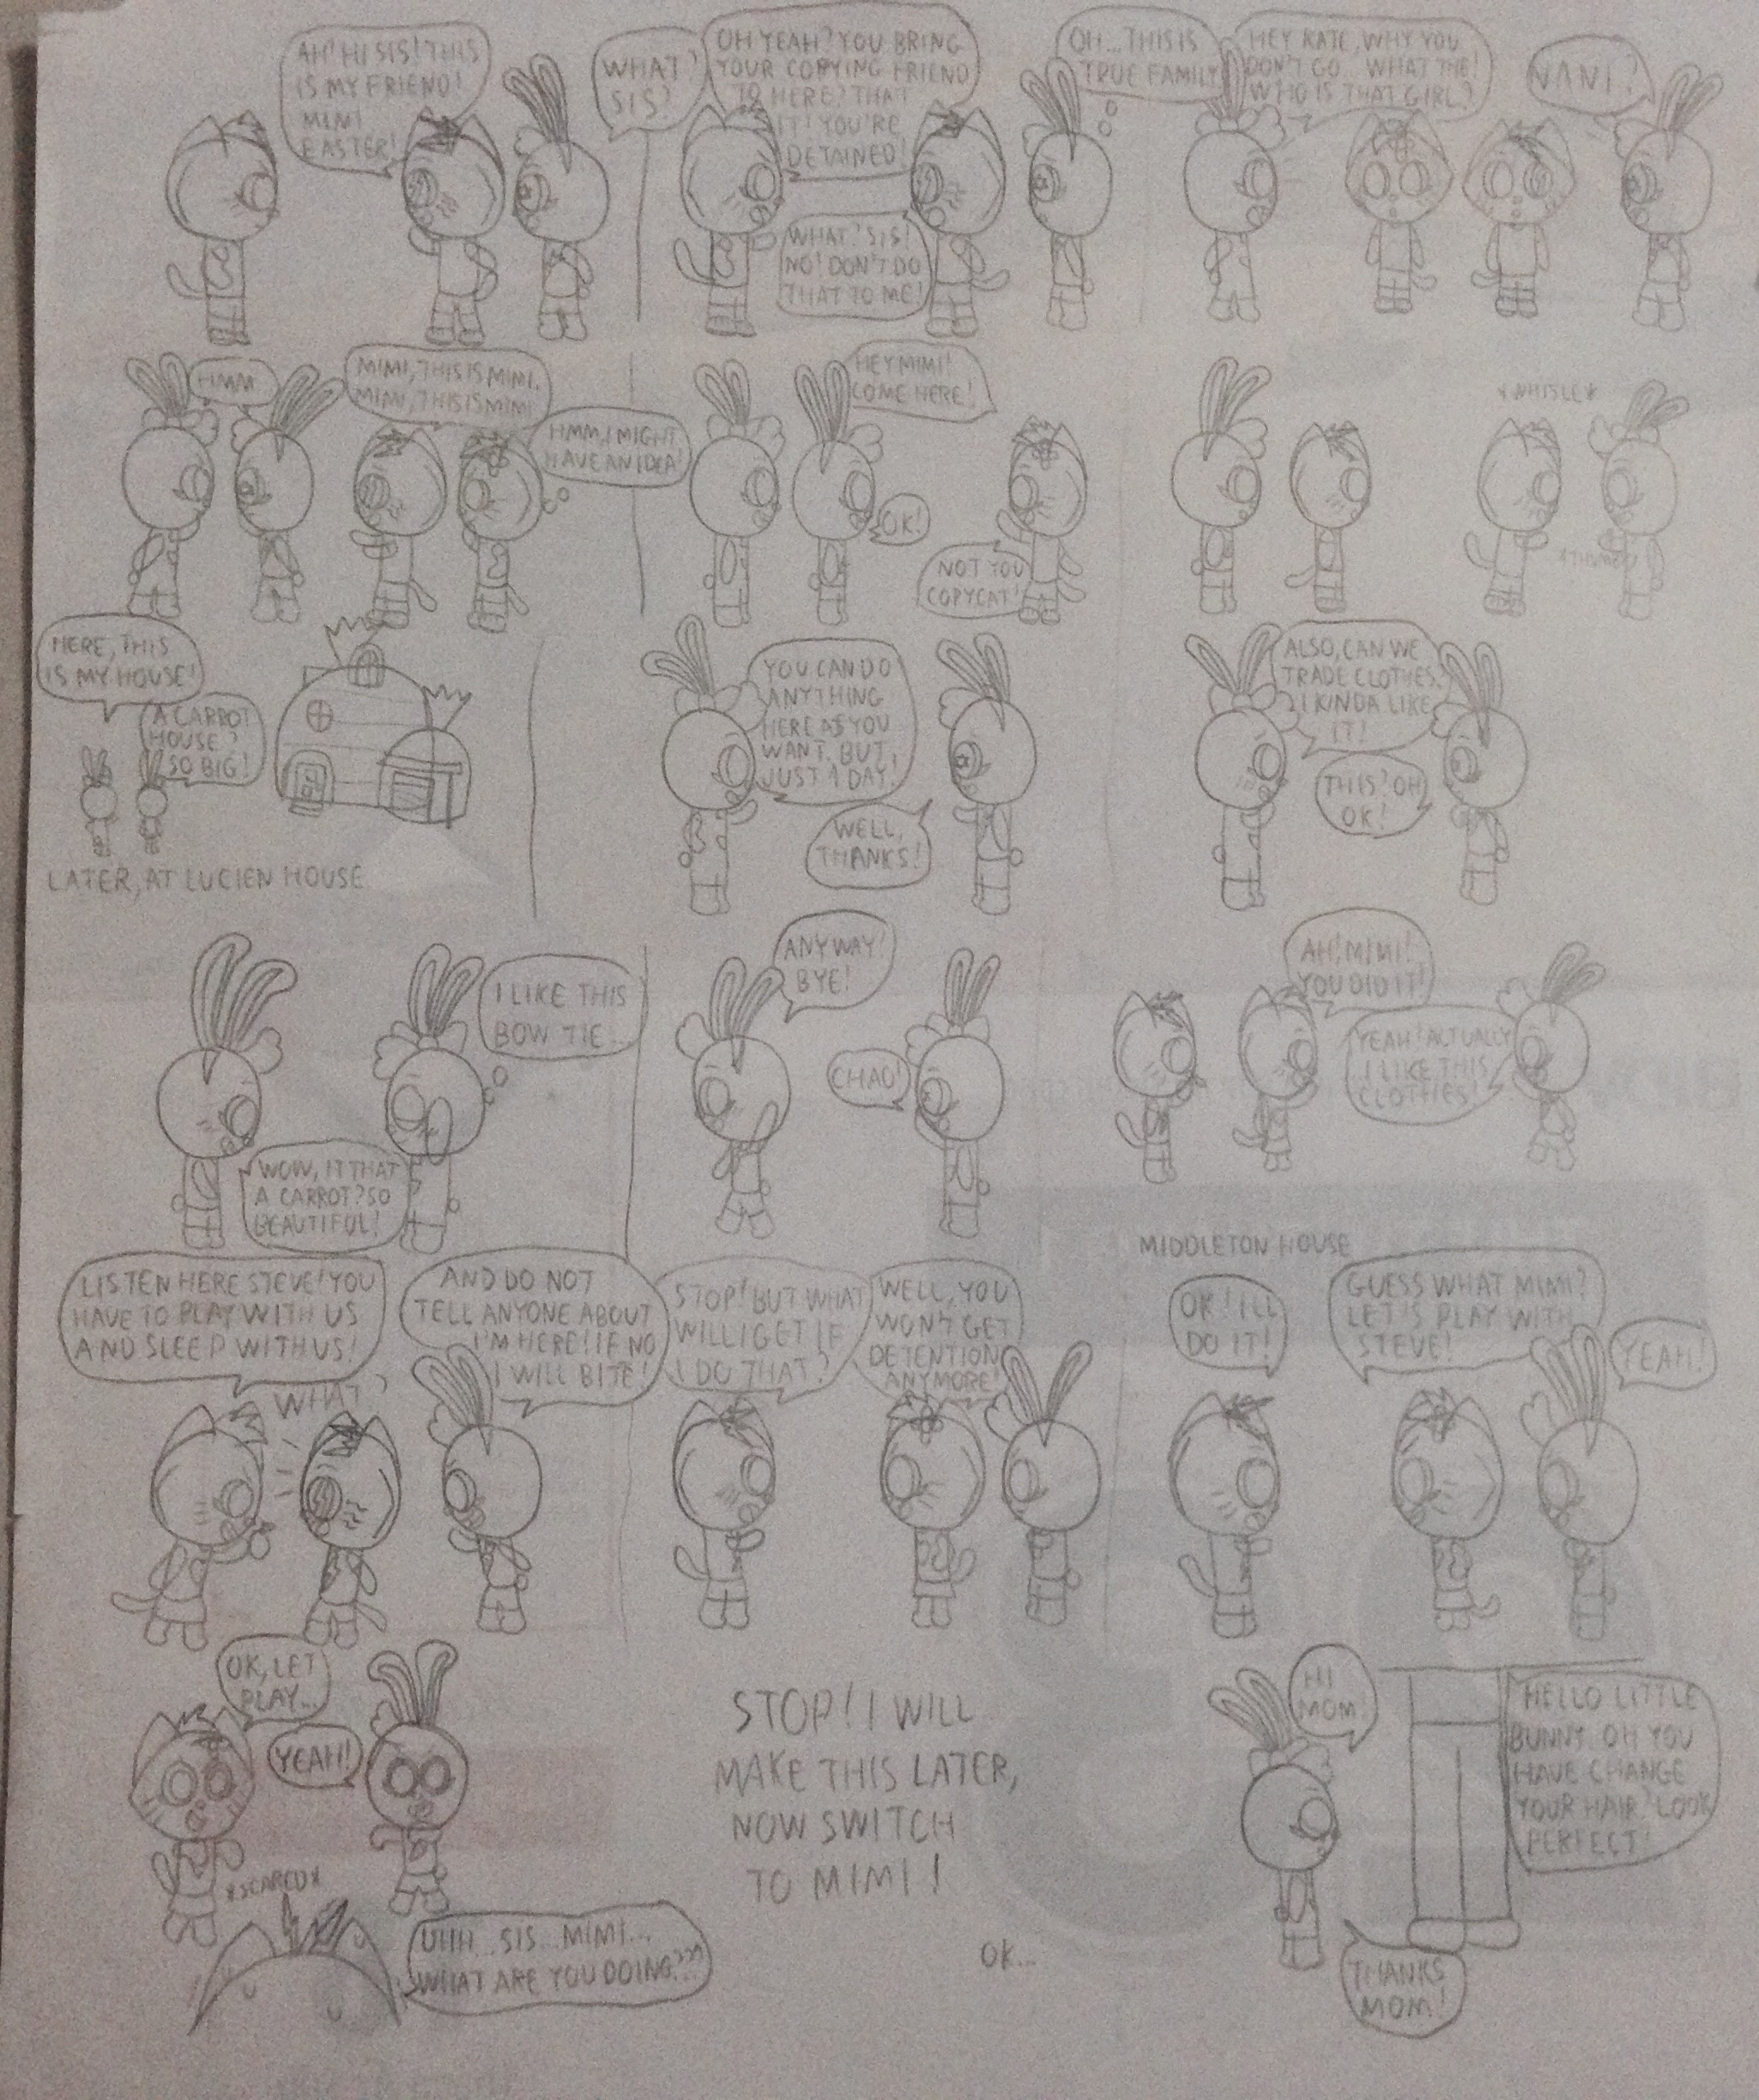 AH! HI SIS! THIS
IS MY FRIEND!
MIMI
EASTER!
WHAT?
SIS?
OH YEAH? YOU BRING
YOUR COPYING FRIEND
TO HERE? THAT
IT! YOU'RE
DETAINED!
WHAT? SIS!
NO! DON'T DO
THAT TO ME!
OH... THIS IS
TRUE FAMILY
HEY KATE, WHY YOU
DON'T GO... WHAT THE!
WHO IS THAT GIRL?
NANI?
HMM...
MIMI, THIS IS MIMI.
MIMI, THIS IS MIMI
HMM, I MIGHT
HAVE AN IDEA!
HEY MIMI!
COME HERE!
OK!
NOT YOU
COPYCAT!
*WHISLE*
HERE, THIS
IS MY HOUSE!
A CARROT
HOUSE?
SO BIG!
LATER, AT LUCIEN HOUSE
YOU CAN DO
ANYTHING
HERE AS YOU
WANT. BUT,
JUST A DAY!
WELL,
THANKS!
ALSO, CAN WE
TRADE CLOTHES?
I KINDA LIKE
IT!
THIS? OH
OK!
I LIKE THIS
BOW TIE...
WOW, IT THAT
A CARROT? SO
BEAUTIFUL!
ANYWAY!
BYE!
CHAO!
AH! MIMI!
YOU DID IT!
YEAH! ACTUALLY
I LIKE THIS
CLOTHES!
MIDDLETON HOUSE
LISTEN HERE STEVE! YOU
HAVE TO PLAY WITH US
AND SLEEP WITH US!
WHAT?
AND DO NOT
TELL ANYONE ABOUT
I'M HERE! IF NO
I WILL BITE!
STOP! BUT WHAT
WILL I GET IF
I DO THAT?
WELL, YOU
WON'T GET
DETENTION
ANYMORE!
OK! ILL
DO IT!
GUESS WHAT MIMI?
LET'S PLAY WITH
STEVE!
YEAH!
OK, LET
PLAY...
YEAH!
*SCARED*
UHH...SIS...MIMI...
WHAT ARE YOU DOING???
STOP! I WILL
MAKE THIS LATER,
NOW SWITCH
TO MIMI!
OK...
HI
MOM
HELLO LITTLE
BUNNY. OH YOU
HAVE CHANGE
YOUR HAIR? LOOK
PERFECT!
THANKS
MOM!